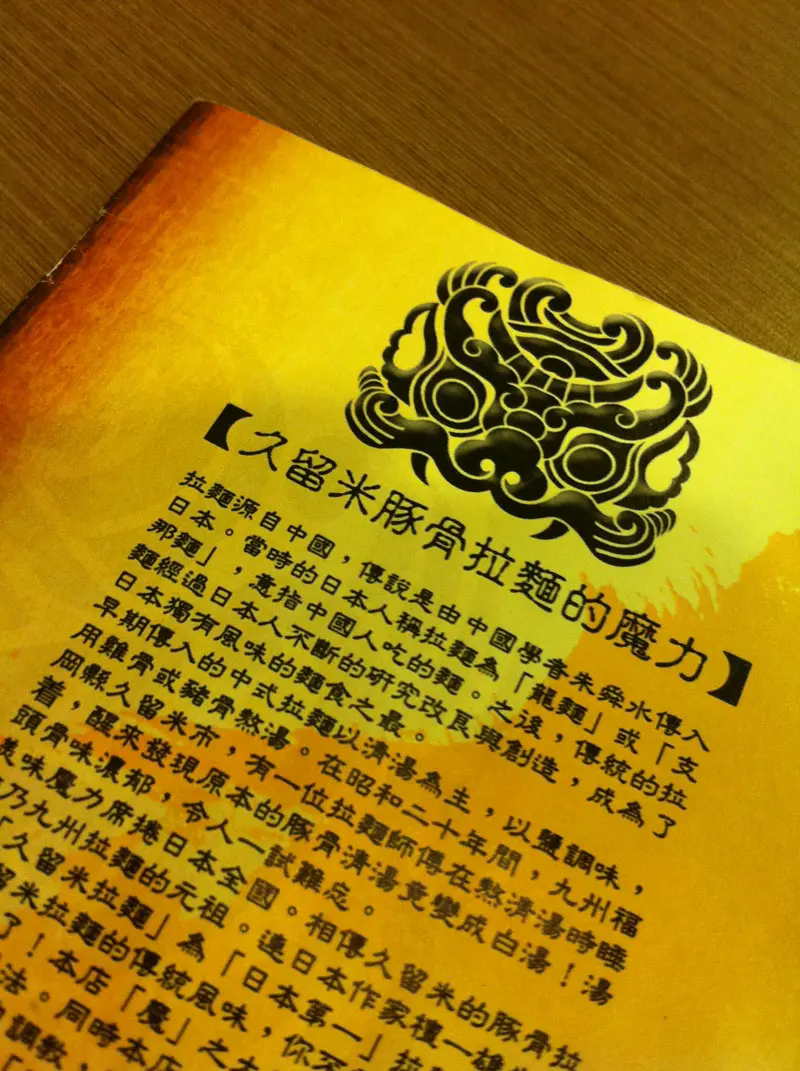 【久留米豚骨拉麵的魔力】
拉麵源自中國，傳說是由中國學者朱舜水傳入
日本。當時的日本人稱拉麵為「龍麵」或「支
那麵」，意指中國人吃的麵。之後，傳統的拉
麵經過日本人不斷的研究改良與創造，成為了
日本獨有風味的麵食之最。
早期傳入的中式拉麵以清湯為主，以鹽調味，
用雞骨或豬骨熬湯。在昭和二十年間，九州福
岡縣久留米市，有一位拉麵師傅在熬清湯時睡
着，醒來發現原本的豚骨清湯竟變成白湯！湯
頭骨味濃郁，令人一試難忘。
美味魔力席捲日本全國。相傳久留米的豚骨拉
乃九州拉麵的元祖。連日本作家檀一雄
「久留米拉麵」為「日本第一」拉
留米拉麵的傳統風味，你不
了！本店「魔」之
法。同時本店
調教，